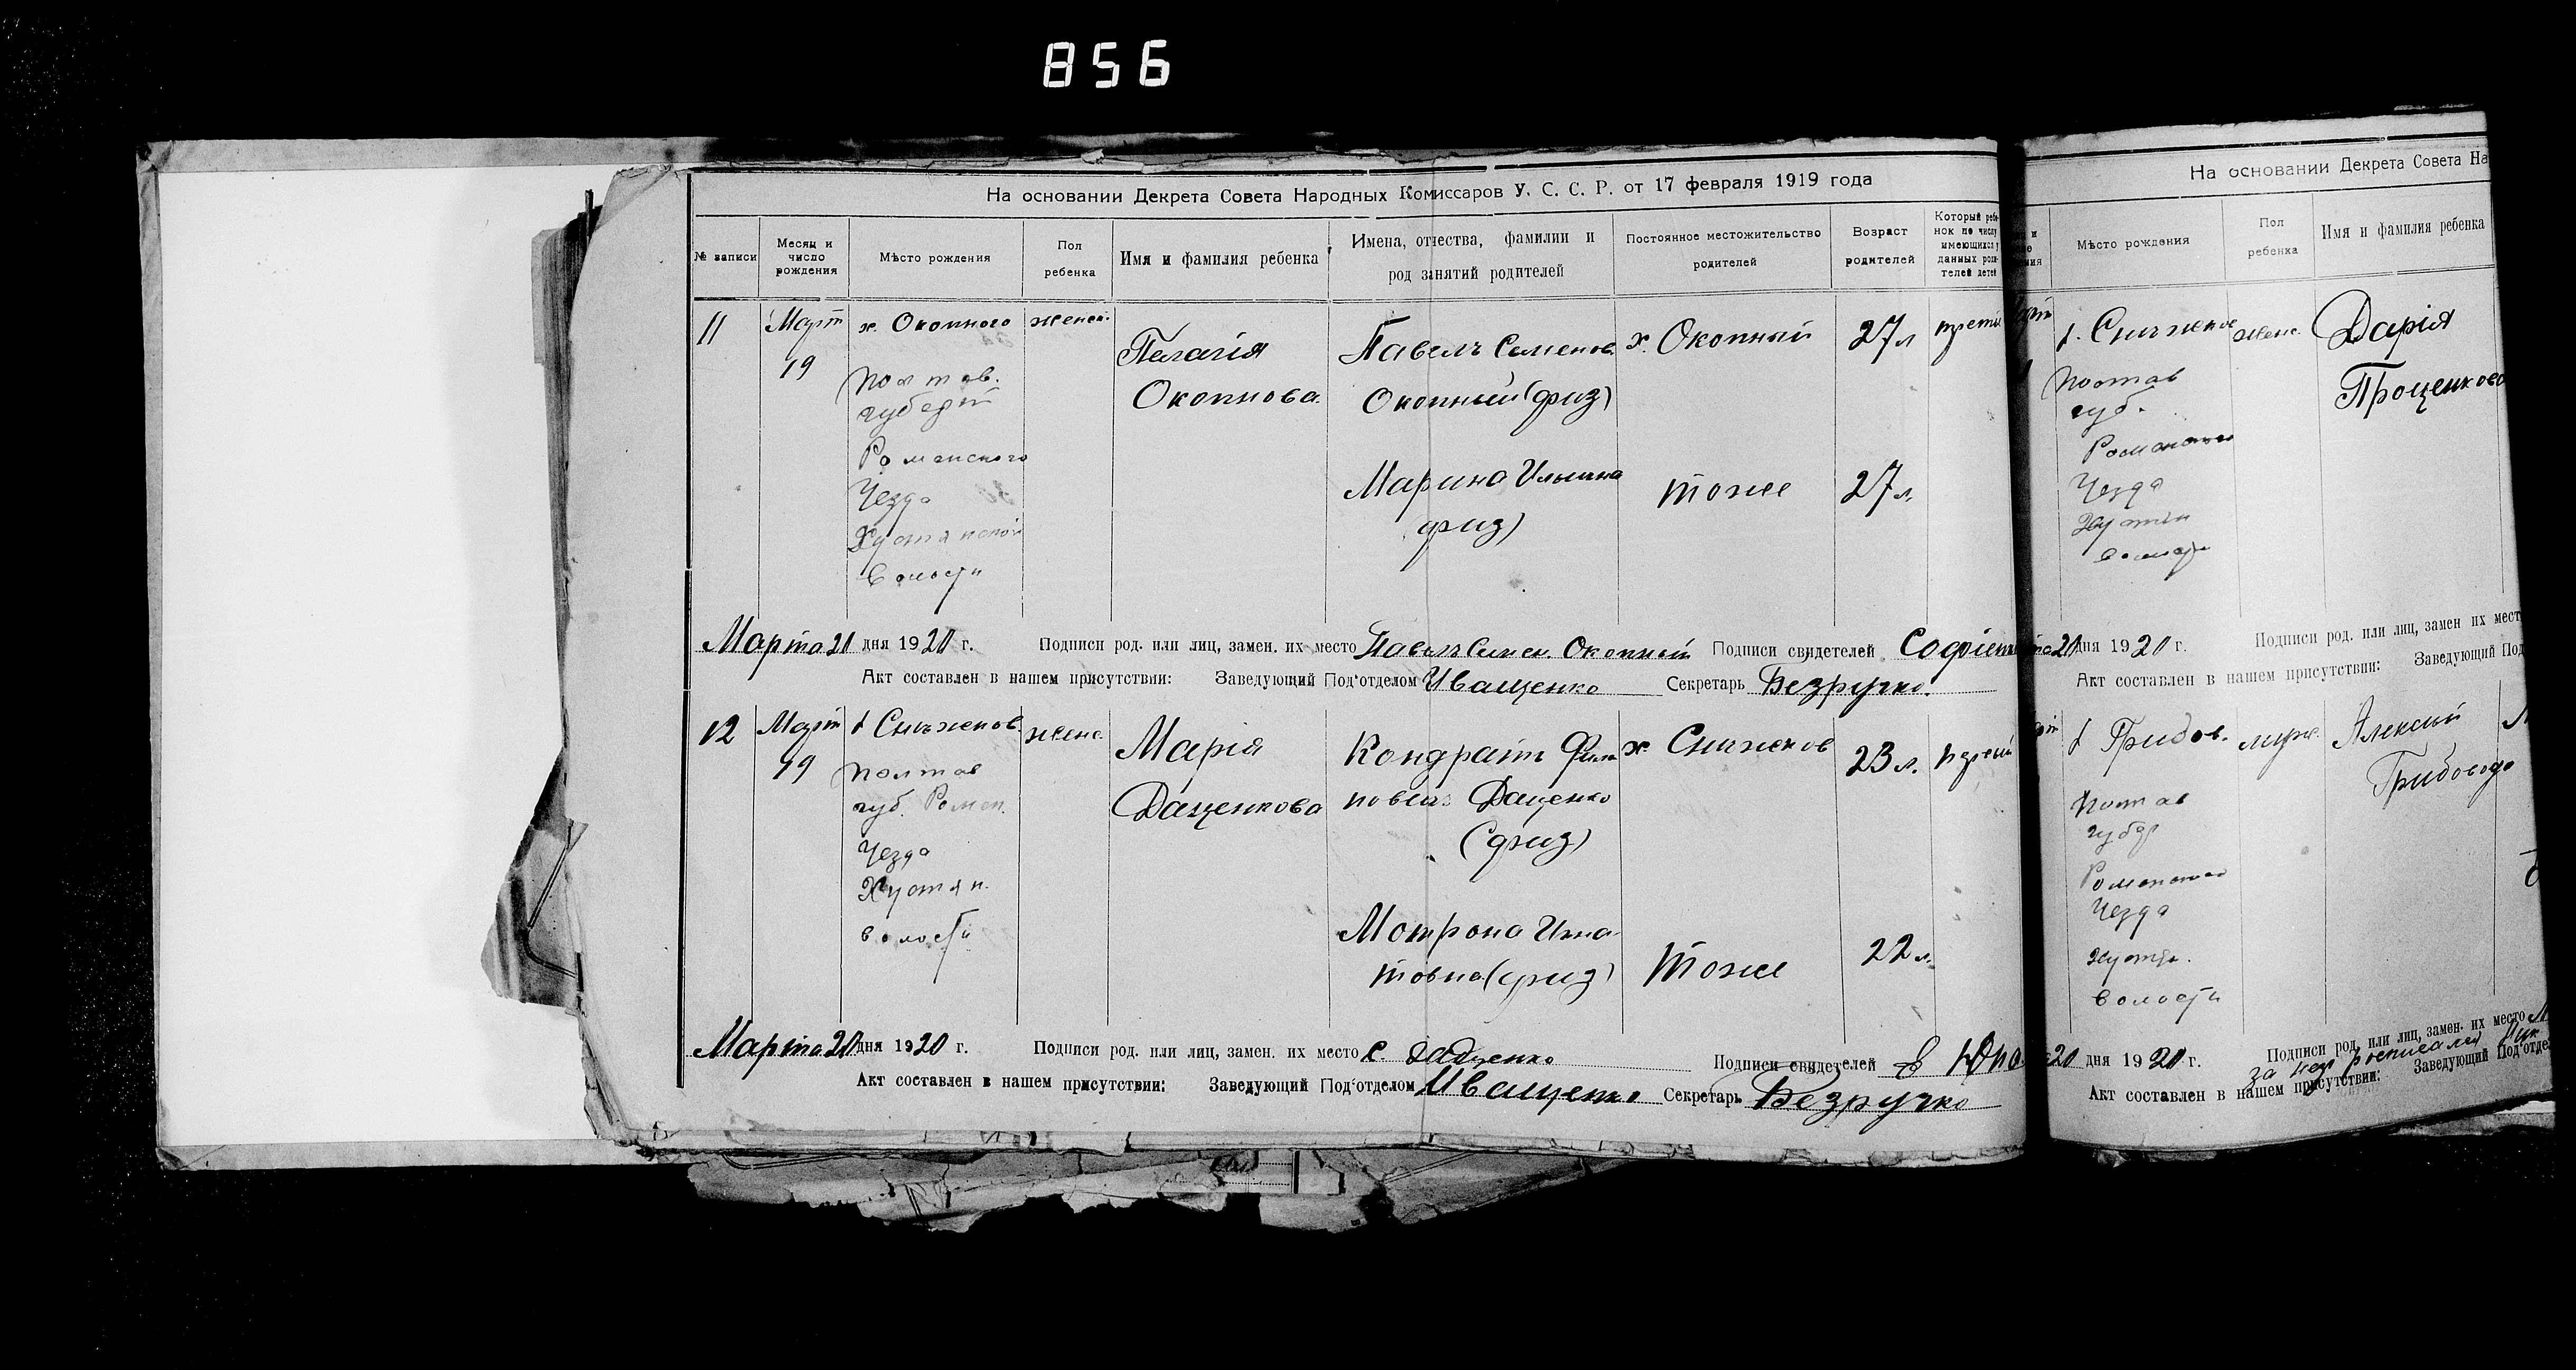 856
На основании Декрета Совета Народных Комиссаров У. С. С. Р. от 17 февраля 1919 года
№ записи
Месяц и число рождения
Мѣсто рождения
Пол ребенка
Имя и фамилия ребенка
Имена, отчества, фамилии и род занятий родителей
Постоянное местожительство родителей
Возраст родителей
Который ребенок по числу имеющихся у данных родителей детей
11
Март
19
х. Окопного
Полтав.
губерн
Роменского
Уезда
Хустянской
волости
женск.
Пелагія
Окопнова
Павелъ Семенов.
Окопный (физ)
Марина Ильина
физ)
х. Окопный
тоже
27 л
27 л.
трети
Марта 21 дня 1920 г.
Подписи род. или лиц, замен. их место Павелъ Семен. Окопный
Подписи свидетелей
Акт составлен в нашем присутствии: Заведующий Под'отделом Иващенко Секретарь Безручко.
12
Март
19
х Снѣжков.
Полтав
губ. Ромен.
Уезда
Хустян.
волости
женс.
Марія
Даценкова
Кондратъ Фили
повичъ Даценко
(физ)
Мотрона Игна
товна (физ)
х. Снѣжков
Тоже
23 л.
22 л.
Марта 20 дня 1920 г.
Подписи род. или лиц, замен. их место К. Даценко
Подписи свидетелей
Акт составлен в нашем присутствии: Заведующий Под'отделом Иващенко Секретарь Безручко
На основании Декрета Совета На
Мѣсто рождения
Пол ребенка
Имя и фамилия ребенка
Полтав
губ.
Уезда
Хустян
волости
женс.
Дарія
Проценкова
20 дня 1920 г.
Подписи род. или лиц, замен их мест
Акт составлен в нашем присутствии: Заведующий Под
х Грибов.
Полтав
губер
Роменского
Уезда
Хустян.
волости
мужс.
Алексѣй
20 дня 1920 г.
Подписи род. или лиц, замен. их место
за нея росписался
Акт составлен в нашем присутствии: Заведующий Под'отде